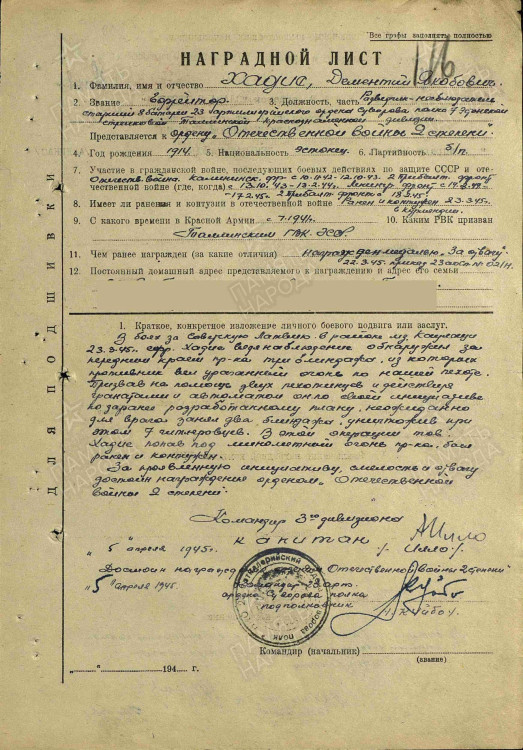 Все графы заполнять полностью
НАГРАДНОЙ ЛИСТ
1. Фамилия, имя и отчество Хадис, Дементий Якобович
2. Звание Ефрейтор. 3. Должность, часть Разведчик-наблюдатель
старший 8 батареи 23 артиллерийского ордена Суворова полка 7 Эстонской
стрелковой Таллинской Краснознаменной дивизии.
Представляется к ордену „Отечественной войны 2 степени“.
4. Год рождения 1914. 5. Национальность эстонец 6. Партийность б/п.
7. Участие в гражданской войне, последующих боевых действиях по защите СССР и оте-
чественной войне (где, когда) Отечеств. война. Калининск. фр. с 10.11.42-12.10.43. 2 Прибалт. фронт
с 13.10.43-13.2.44. Ленингр. фронт с 14.2.44-
17.2.45. 2 Прибалт. фронт 18.3.45
8. Имеет ли ранения и контузии в отечественной войне Ранен и контужен 23.3.45.
в Курляндии.
9. С какого времени в Красной Армии с 7.1941. 10. Каким РВК призван
Таллинским ГВК. ЭССР.
11. Чем ранее награжден (за какие отличия) награжден медалью „За отвагу“
22.3.45. приказ 23 АОСП № 02/н.
12. Постоянный домашний адрес представляемого к награждению и адрес его семьи
ДЛЯ ПОДШИВКИ
I. Краткое, конкретное изложение личного боевого подвига или заслуг.
В боях за Советскую Латвию в районе м.
23.3.45г. ефр. Хадис ведя наблюдение обнаружил за
передним краем пр-ка три блиндажа, из которых
противник вел ураганный огонь по нашей пехоте.
Призвав на помощь двух пехотинцев и действуя
гранатами и автоматом он по своей инициативе
по заранее разработанному плану, неожиданно
для врага занял два блиндажа, уничтожив при
этом 7 гитлеровцев. В этой операции тов.
Хадис попав под минометный огонь пр-ка, был
ранен и контужен.
За проявленную инициативу, смелость и отвагу
достоин награждения орденом „Отечественной
войны 2 степени“.
Командир 3го дивизиона
капитан
/- Илло /
„ 5 “ апреля 1945г.
Достоин награждения орденом Отечественной войны 2 степени
„5“ апреля 1945. Командир 23 арт.
ордена Суворова полка
подполковник
Командир (начальник)
(звание)
„ “ 194 г.